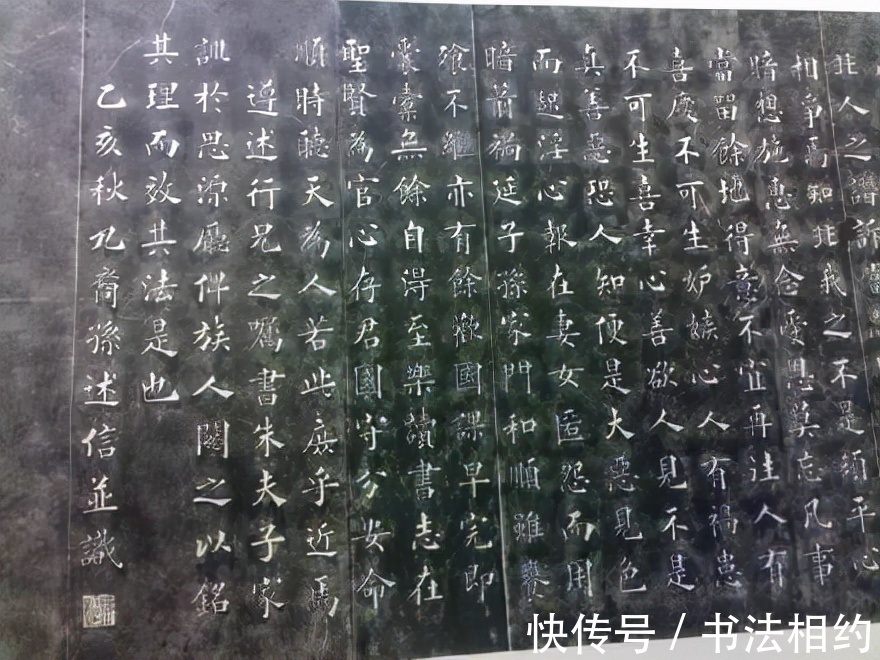 非人之譖訴當
相爭焉知非我之不是須平心
暗想施惠無念受恩莫忘凡事
當留餘地得意不宜再往人有
喜慶不可生妒嫉心人有禍患
不可生喜幸心善欲人見不是
真善惡恐人知便是大惡見色
而起淫心報在妻女匿怨而用
暗箭禍延子孫家門和順雖饔
飧不繼亦有餘歡國課早完即
囊橐無餘自得至樂讀書志在
聖賢為官心存君國守分安命
順時聽天為人若此庶乎近焉
遵述行兄之囑書朱夫子家
訓於思源廳俾族人閱之以銘
其理而效其法是也
乙亥秋九裔孫述信並識
快传号 / 书法相约